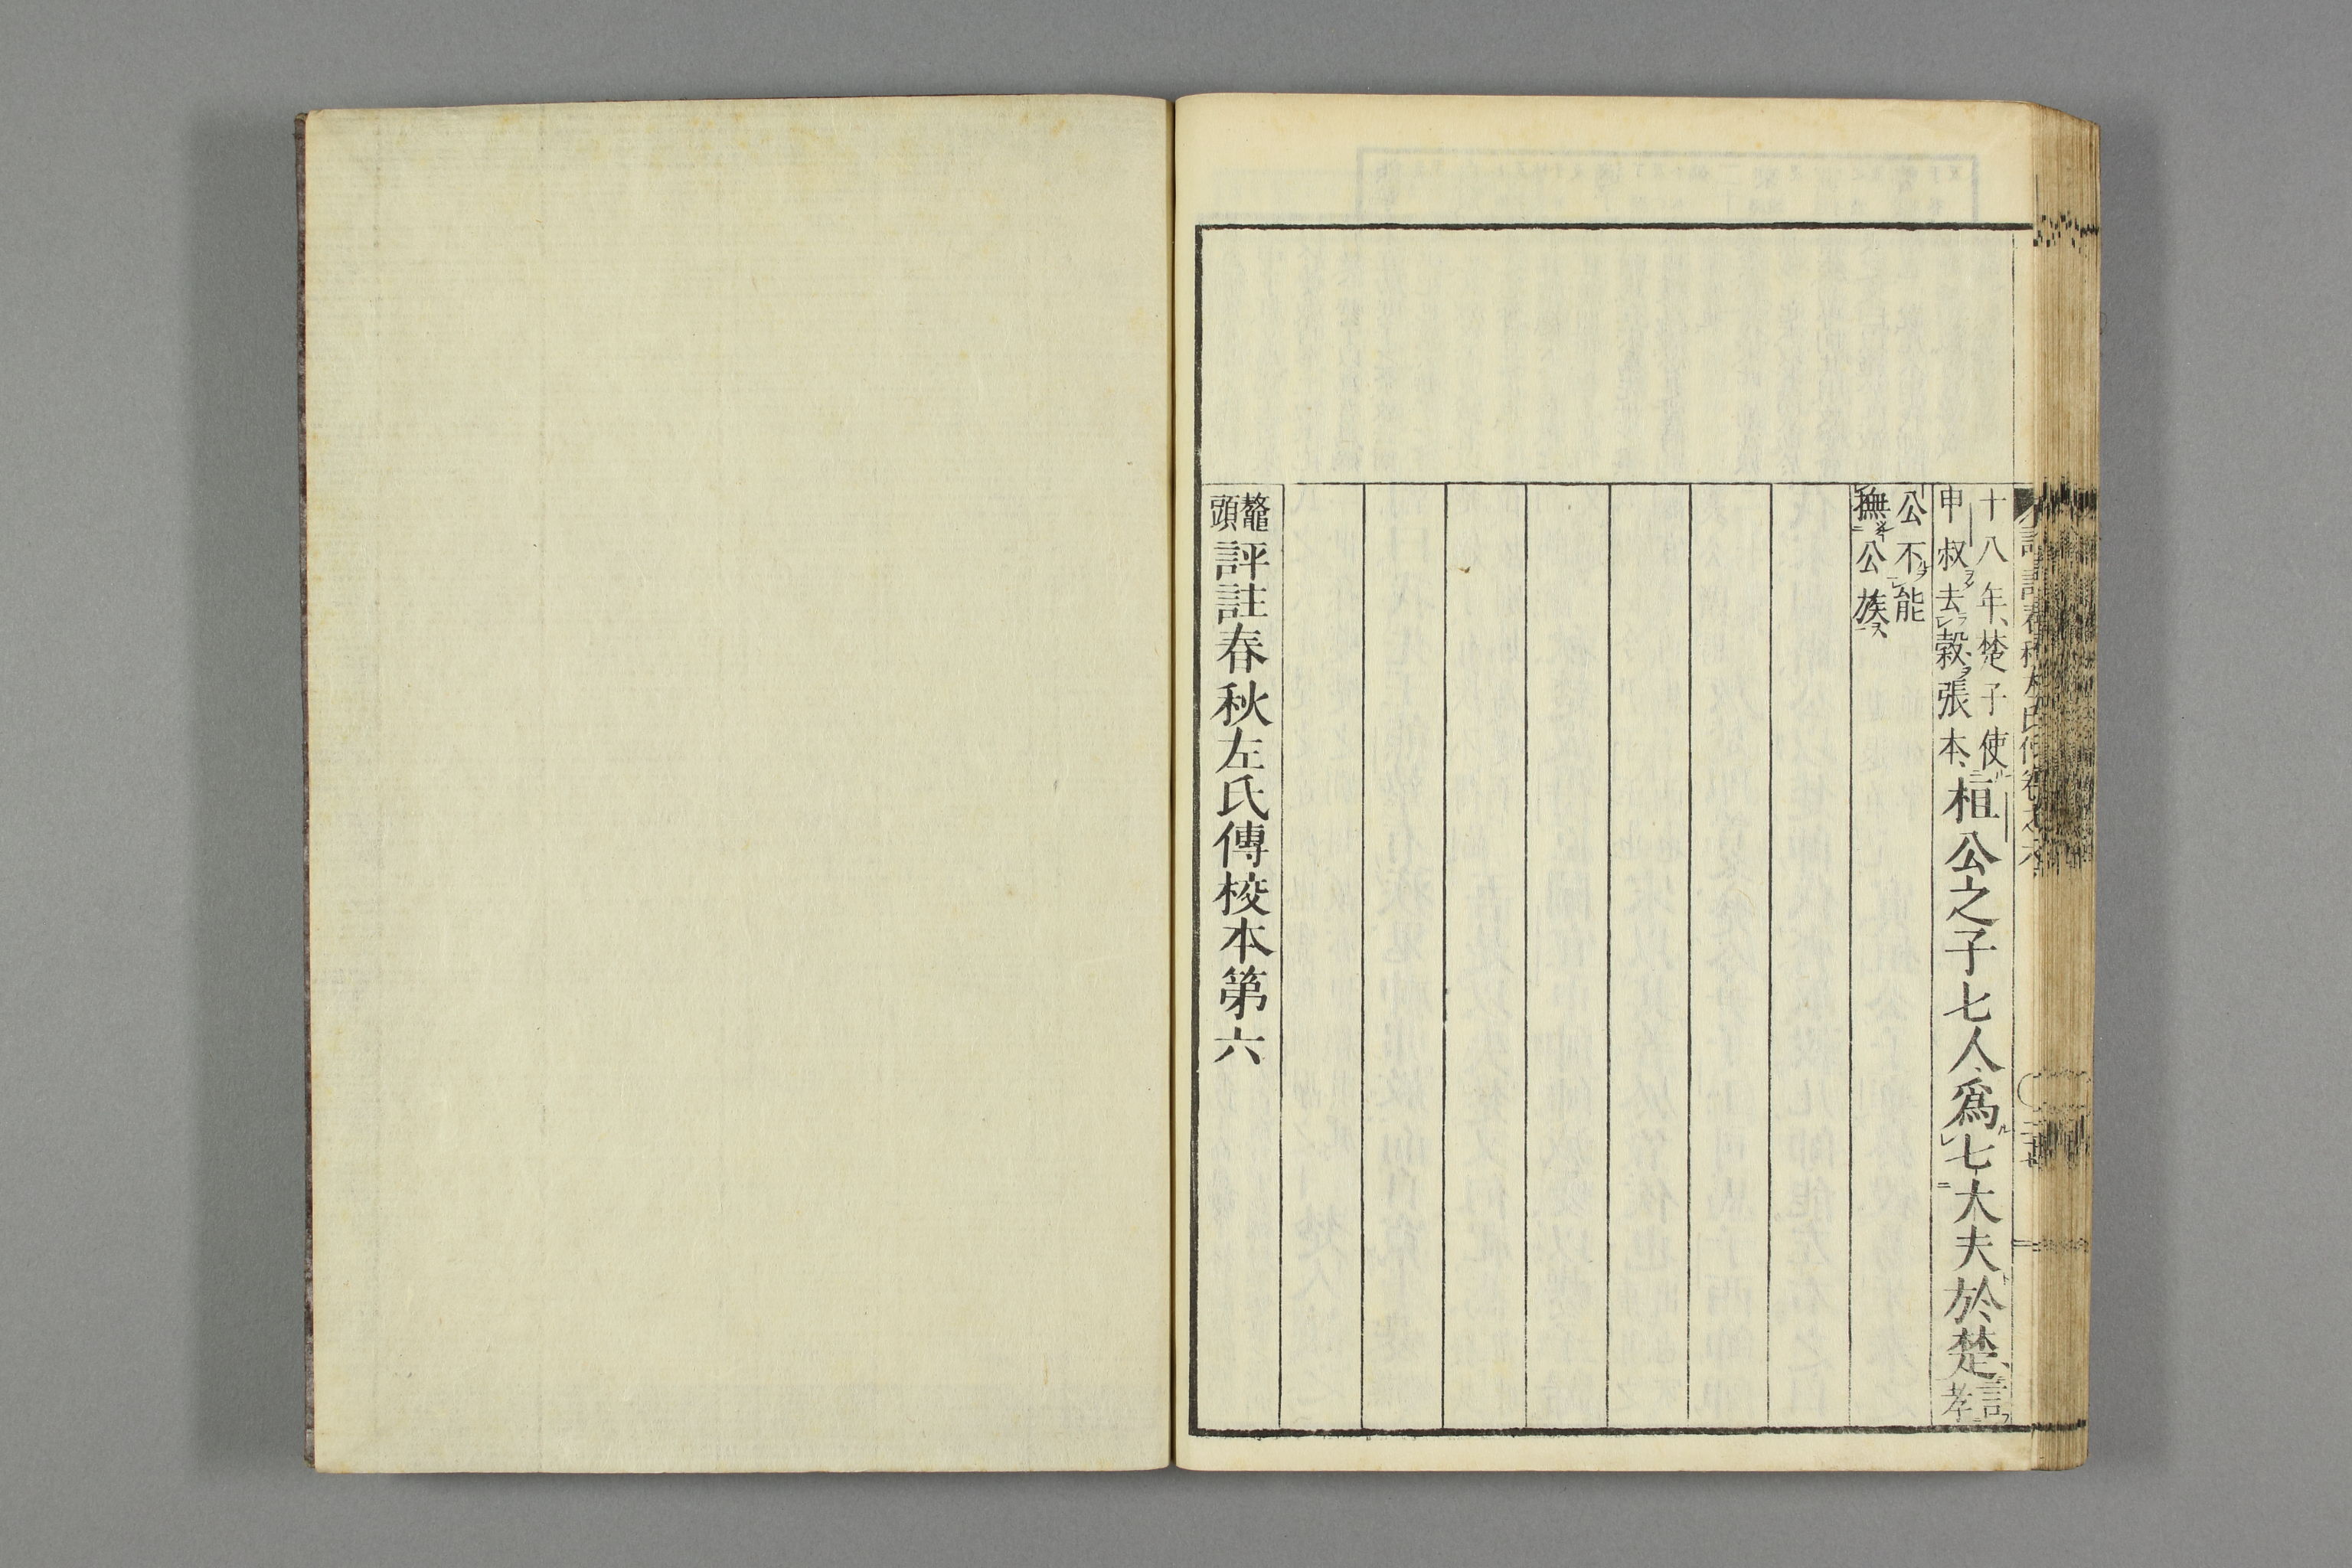 十八年、楚子使
申叔去穀、張本、
桓公之子七人、爲七大夫於楚、
言孝
公不能
撫公族
鼇頭評註春秋左氏傳校本第六